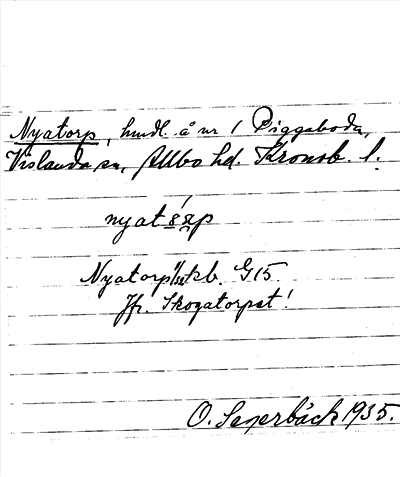 Nyatorp, hmdl. å nr 1 Piggaboda,
Vislanda sn, Allbo hd. Kronob. l.
nyat
Nyatorp kb. G15
Jfr. Skogatorpet!
O. Sagerbäck 1935.